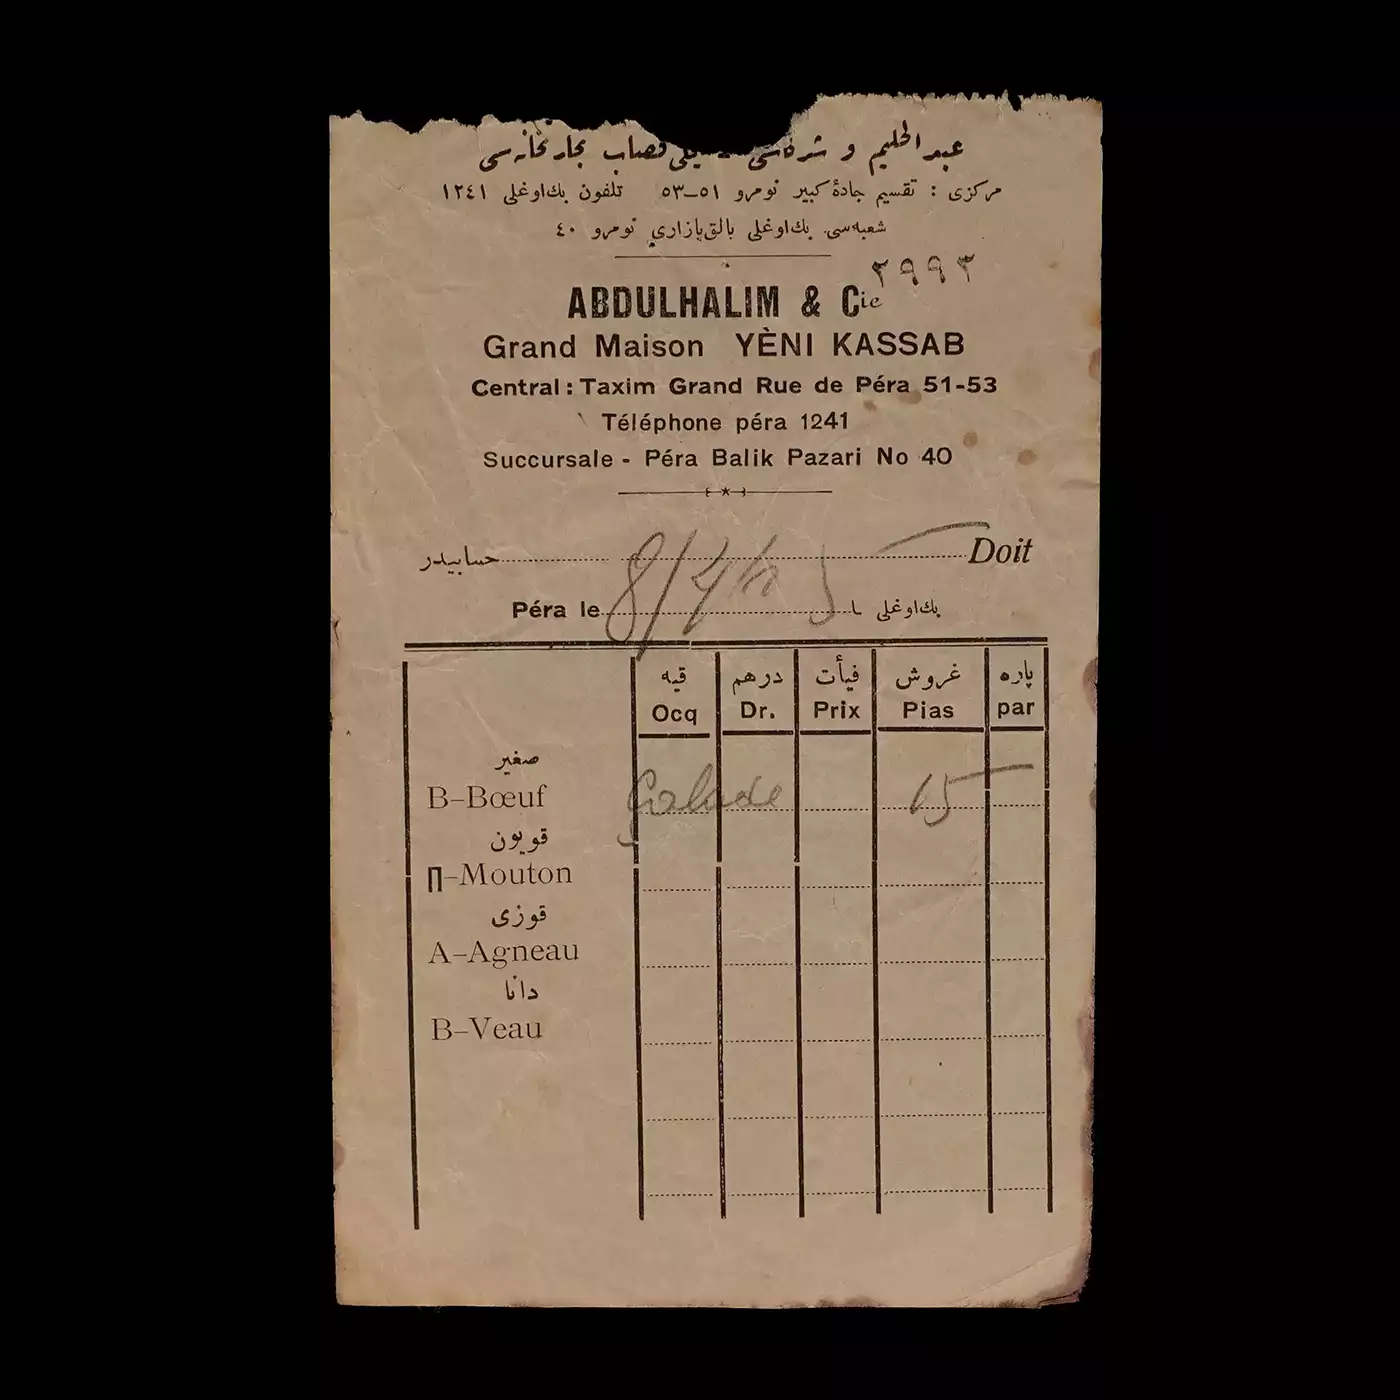 عبدالحليم و شركاسی يكی قصاب تجارتخانه‌سی
مركزی : تقسيم جادۀ كبير نومرو ٥١–٥٣ تلفون بك‌اوغلی ١٢٤١
شعبه‌سی بك‌اوغلی بالق‌پازاری نومرو ٤٠
٢٩٩٢
ABDULHALIM & Cie
Grand Maison YÈNI KASSAB
Central : Taxim Grand Rue de Péra 51-53
Téléphone péra 1241
Succursale - Péra Balik Pazari No 40
حسابيدر Doit
Péra le 8/4 بك‌اوغلی
قيه درهم فيأت غروش پاره
Ocq Dr. Prix Pias par
صغير
B-Bœuf Salade 15
قويون
П-Mouton
قوزی
A-Agneau
دانا
B-Veau